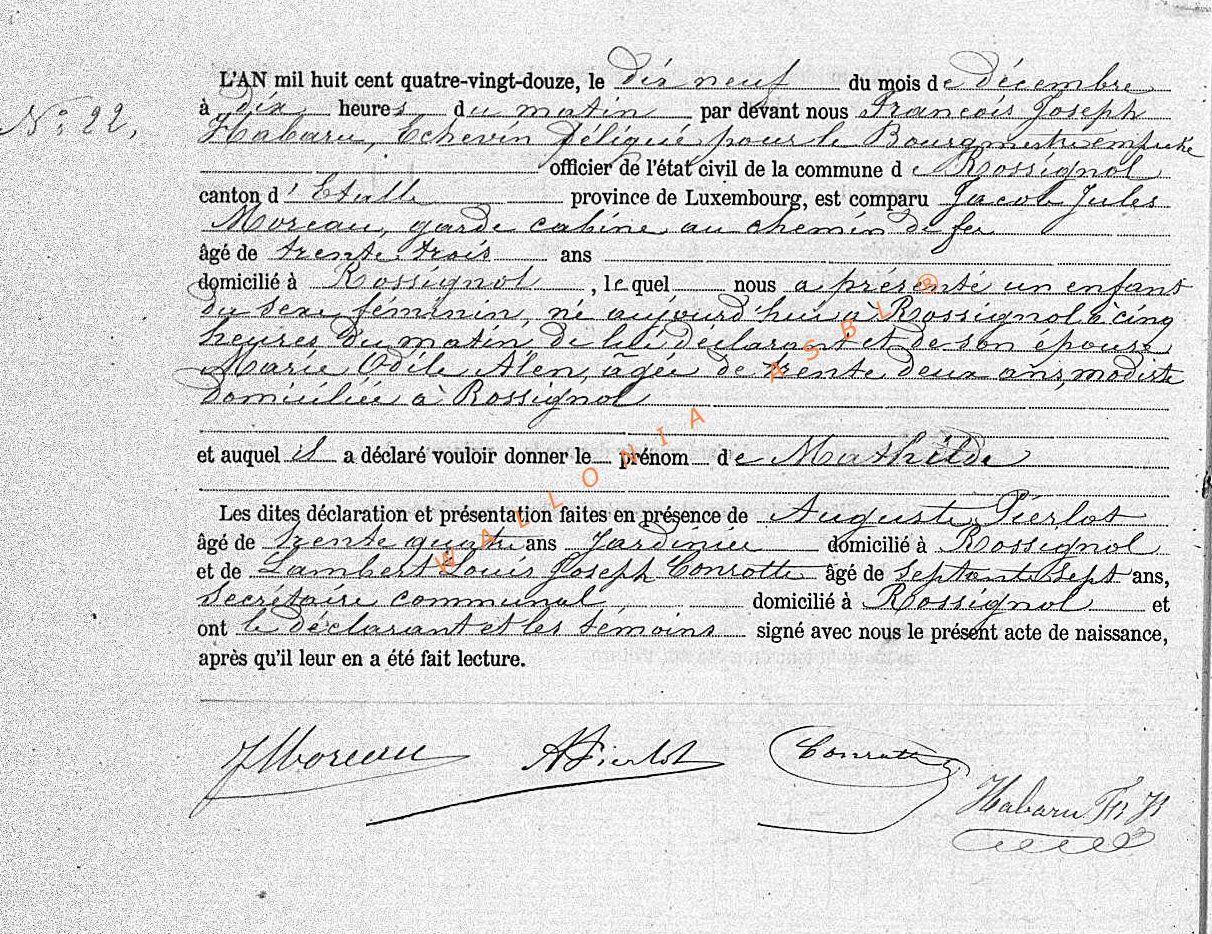 L'AN mil huit cent quatre-vingt-douze, le dix neuf du mois de décembre
No. 22.
à dix heures du matin par devant nous François Joseph
Habaru, Echevin Délégué pour le Bourgmestre empêché
officier de l'état civil de la commune de Rossignol
canton d'Etalle province de Luxembourg, est comparu Jacob Jules
Moreau, garde cabine au chemin de fer
âgé de trente trois ans
domicilié à Rossignol, lequel nous a présenté un enfant
du sexe féminin, né aujourd'hui à Rossignol à cinq
heures du matin, de lui déclarant et de son épouse
Marie Odile Alen, âgée de trente deux ans, modiste
domiciliée à Rossignol
et auquel il a déclaré vouloir donner le prénom de Mathilde
Les dites déclaration et présentation faites en présence de Auguste Pierlot
âgé de trente quatre ans Jardinier domicilié à Rossignol
et de Lambert Louis Joseph Conrotte âgé de septante sept ans,
secrétaire communal domicilié à Rossignol et
ont le déclarant et les témoins signé avec nous le présent acte de naissance,
après qu'il leur en a été fait lecture.
JMoreau APierlot Conrotte
Habaru Fs Jh
WALLONIA ASBL ®